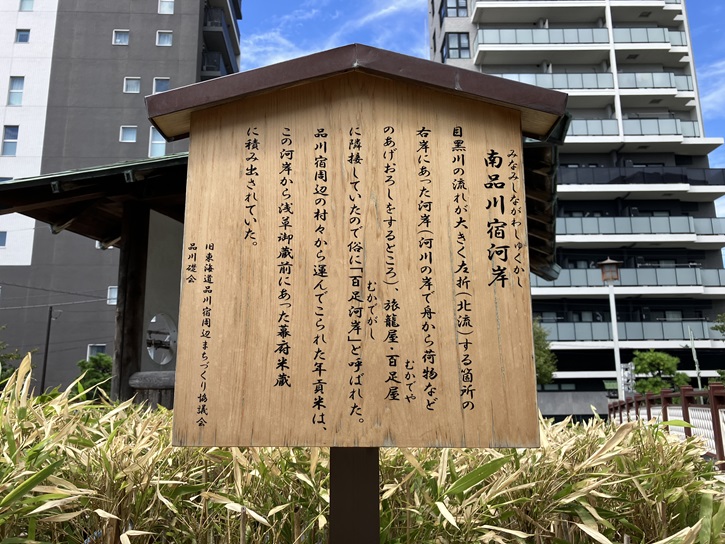 みなみしながわしゆくかし
南品川宿河岸
目黒川の流れが大きく左折(北流)する箇所の
右岸にあった河岸(河川の岸で舟から荷物など
むかでや
のあげおろしをするところ)、旅籠屋・百足屋
むかでがし
に隣接していたので俗に「百足河岸」と呼ばれた。
品川宿周辺の村々から運んでこられた年貢米は、
この河岸から浅草御蔵前にあった幕府米蔵
に積み出されていた。
旧東海道品川宿周辺まちづくり協議会
品川礎会